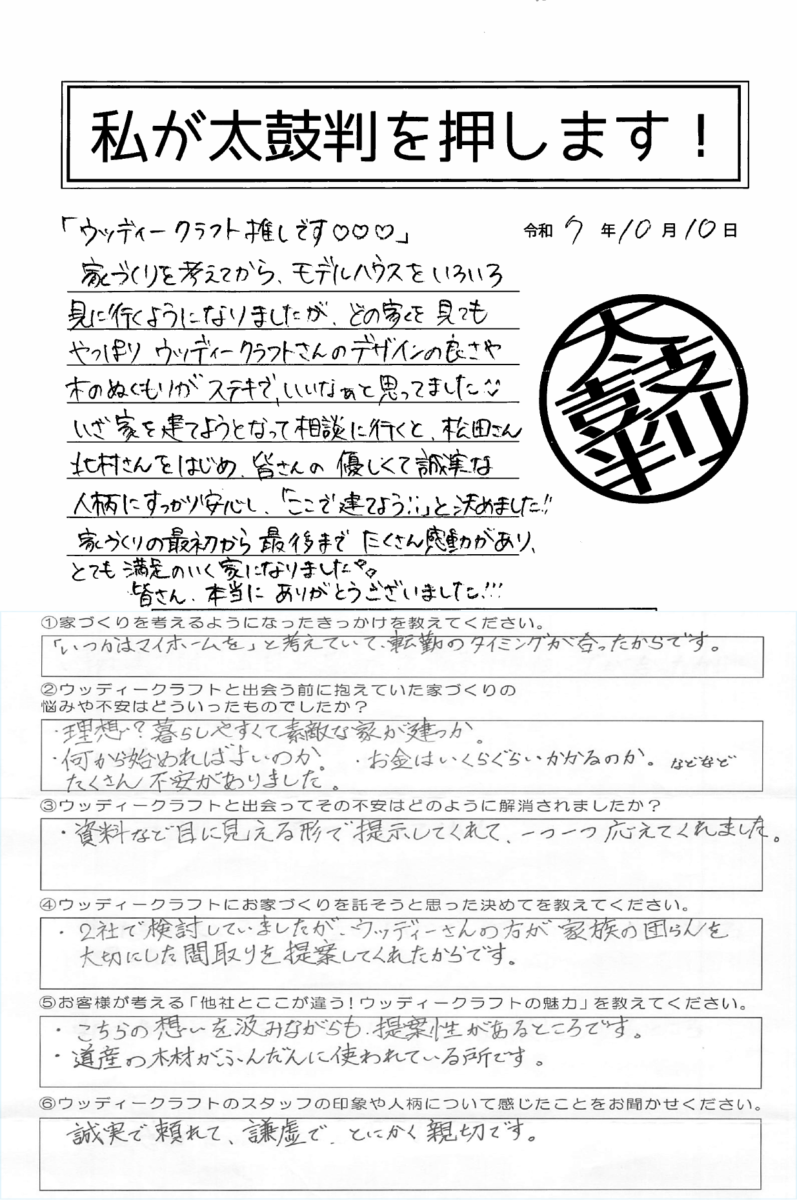 私が太鼓判を押します!
「ウッディークラフト推しです♡♡♡」
令和 7 年 10 月 10 日
家づくりを考えてから、モデルハウスをいろいろ
見に行くようになりましたが、どの家を見ても
やっぱり ウッディークラフトさんのデザインの良さや
木のぬくもりが ステキで、いいなぁと思ってました
いざ 家を建てようとなって 相談に行くと、松田さん
北村さんをはじめ、皆さんの 優しくて誠実な
人柄にすっかり安心し、「ここで建てよう!!」と決めました!!
家づくりの最初から 最後まで たくさん感動があり、
とても 満足のいく家になりました。
皆さん、本当に ありがとうございました!!!
太鼓判
①家づくりを考えるようになったきっかけを教えてください。
「いつかはマイホームを」と考えていて、転勤のタイミングが合ったからです。
②ウッディークラフトと出会う前に抱えていた家づくりの
悩みや不安はどういったものでしたか?
・理想?暮らしやすくて素敵な家が建つか。
・何から始めればよいのか。 ・お金はいくらぐらいかかるのか。 などなど
たくさん 不安がありました。
③ウッディークラフトと出会ってその不安はどのように解消されましたか?
・資料など目に見える形で提示してくれて、一つ一つ 応えてくれました。
④ウッディークラフトにお家づくりを託そうと思った決めてを教えてください。
・2社で検討していましたが、ウッディーさんの方が 家族の団らんを
大切にした間取りを提案してくれたからです。
⑤お客様が考える「他社とここが違う!ウッディークラフトの魅力」を教えてください。
・こちらの想いを汲みながらも、提案性があるところです。
・道産の木材がふんだんに使われている所です。
⑥ウッディークラフトのスタッフの印象や人柄について感じたことをお聞かせください。
誠実で頼れて、謙虚で、とにかく親切です。